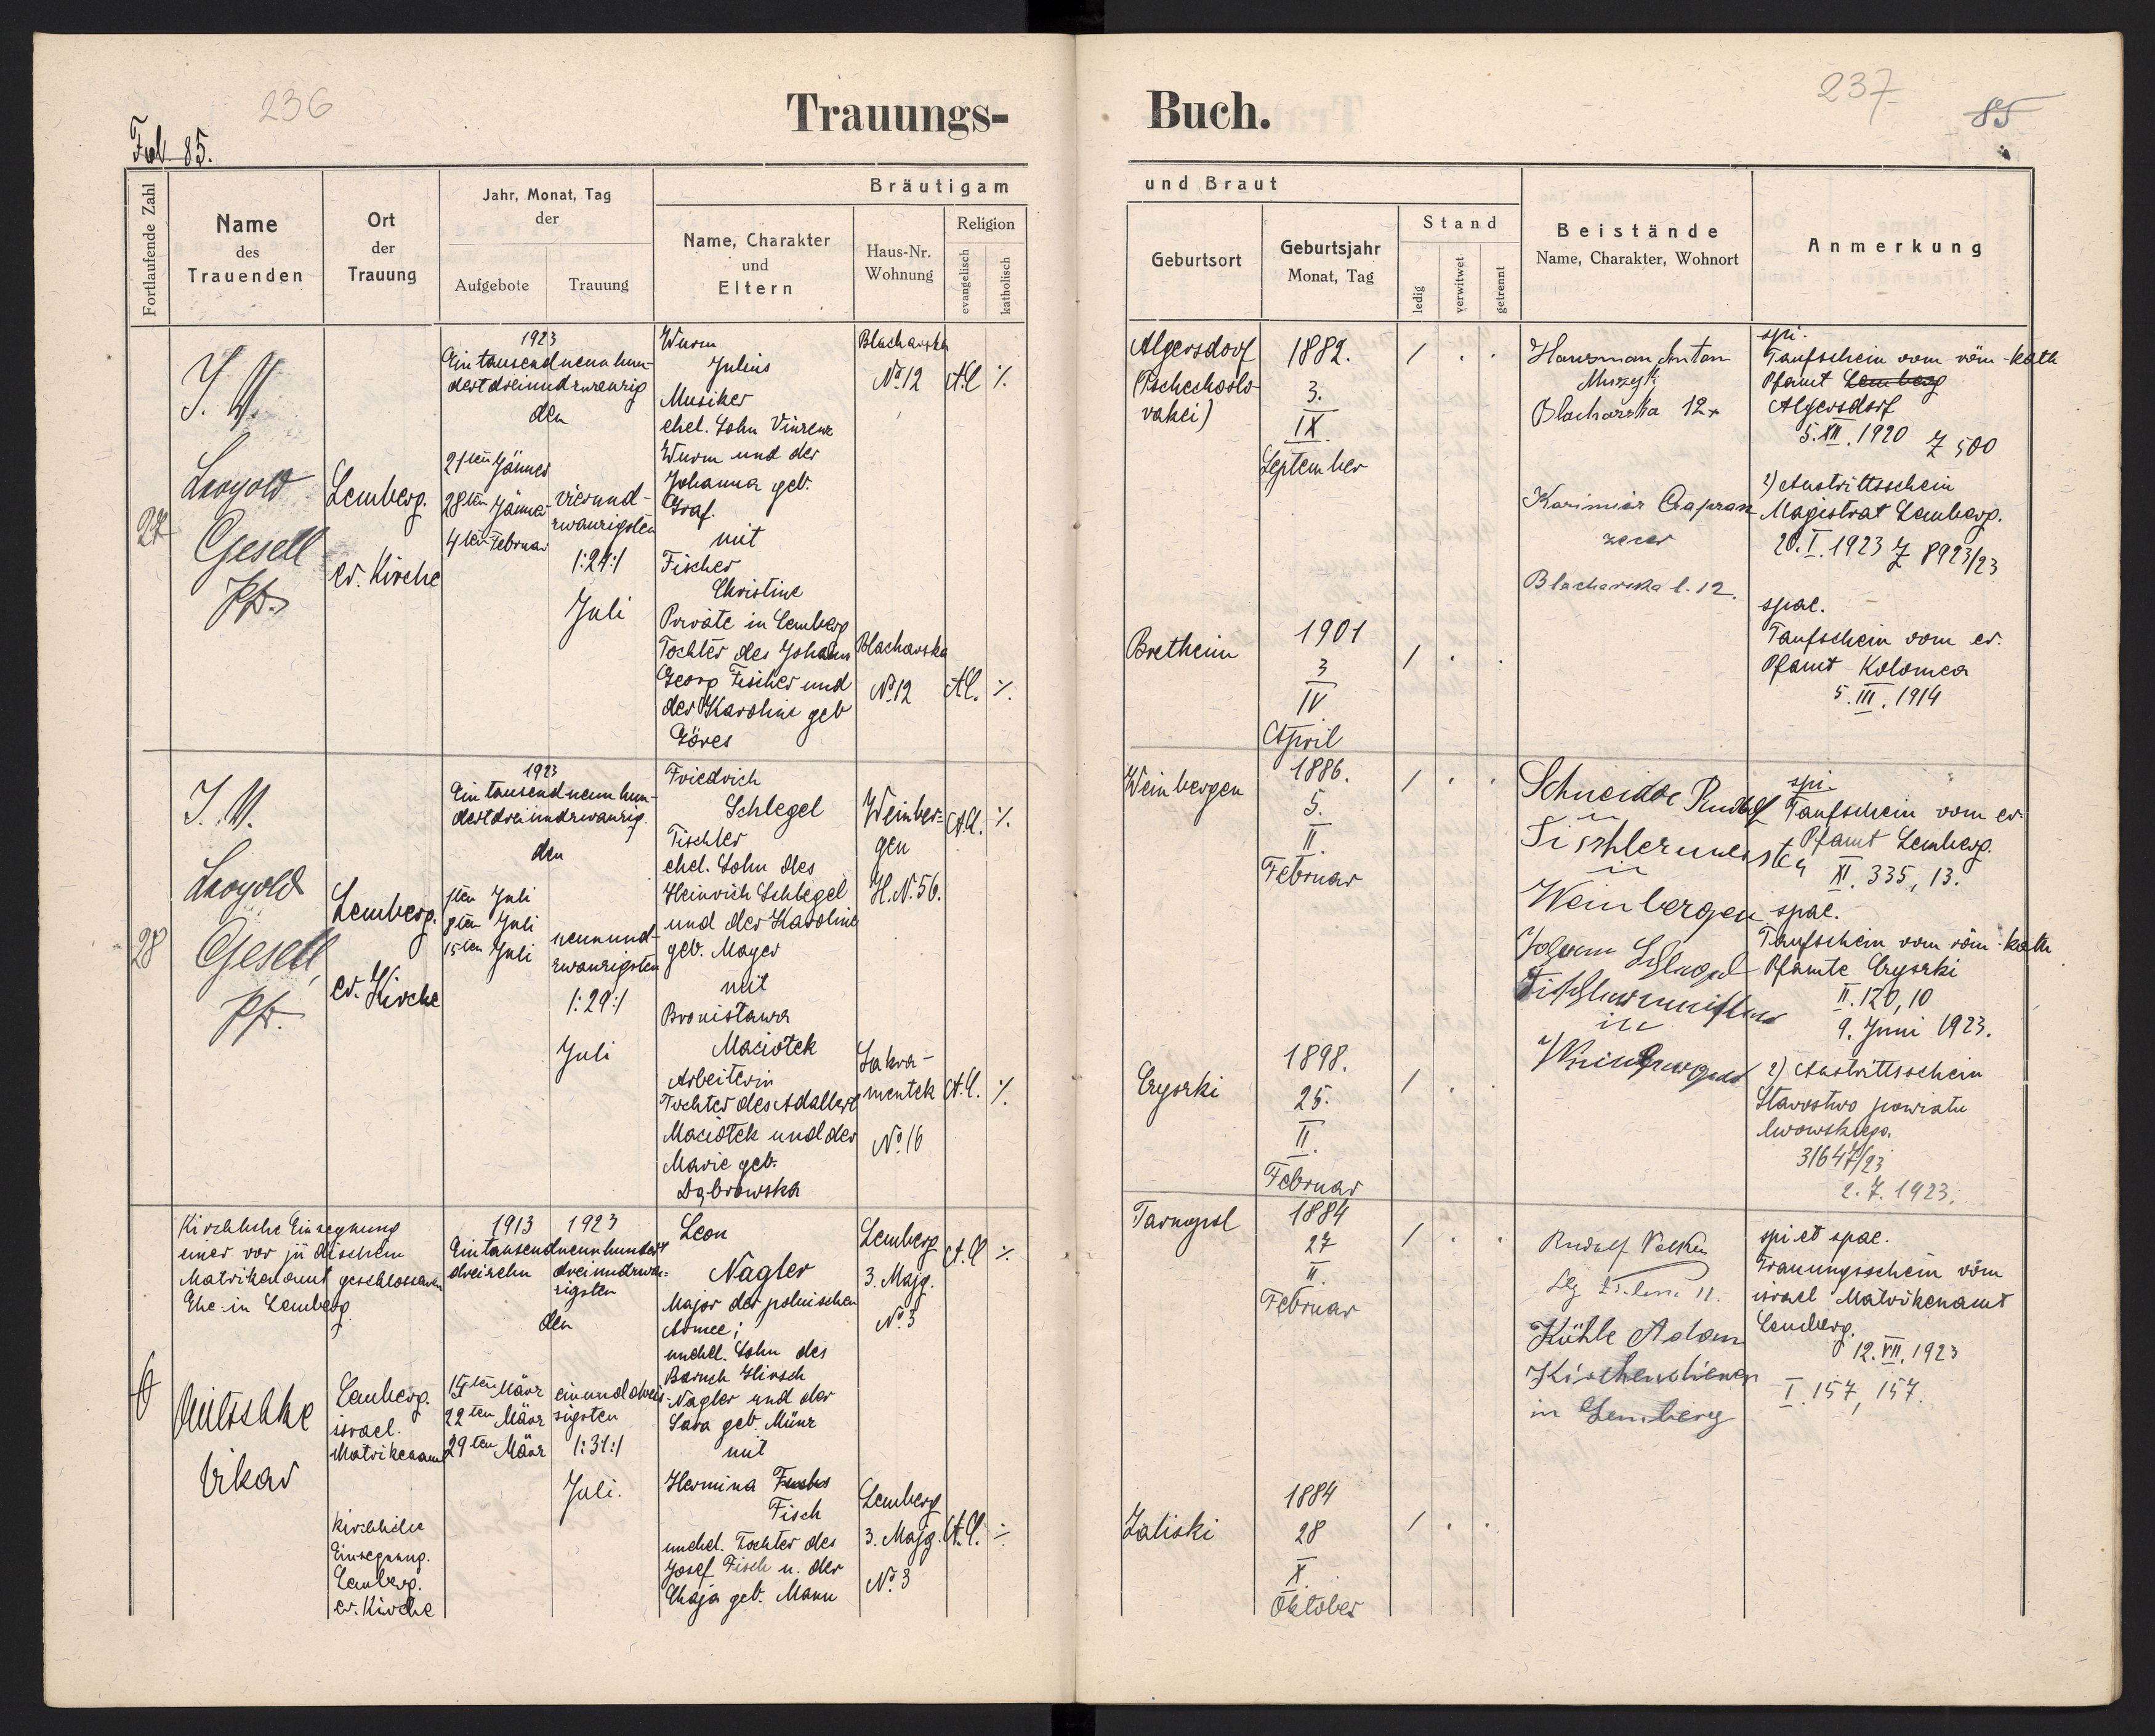 236
Fol 85.
Trauungs-
Fortlaufende Zahl
Name
des
Trauenden
Ort
der
Trauung
Jahr, Monat, Tag
der
Aufgebote
Trauung
Bräutigam
Name, Charakter
und
Eltern
Haus-Nr.
Wohnung
Religion
evangelisch
katholisch
27
I. V.
Leopold
Gesell
Pfr.
Lemberg.
ev. Kirche
1923
Ein tausend neun hun-
dert dreiundzwanzig
den
21ten Jänner
28ten Jänner
4ten Februar
vierund-
zwanzigsten
/:24:/
Juli
Wurm
Julius
Musiker
ehel. Sohn Vinzenz
Wurm und der
Johanna geb.
Graf.
mit
Fischer
Christine
Private in Lemberg
Tochter des Johann
Georg Fischer und
der Karoline geb
Göres
Blacharska
No. 12
A.C. ./.
Blacharska
No. 12
A.C. ./.
28
I. V.
Leopold
Gesell,
Pfr.
Lemberg.
ev. Kirche
1923
Ein tausend neun hun-
dert dreiundzwanzig.
den
1ten Juli
8ten Juli
15ten Juli
neunund-
zwanzigsten
/:29:/
Juli
Friedrich
Schlegel
Tischler
ehel. Sohn des
Heinrich Schlegel
und der Karoline
geb. Mayer
mit
Bronisława
Maciołek
Arbeiterin
Tochter des Adalbert
Maciołek und der
Marie geb.
Dąbrowska
Weinber-
gen
H. N. 56.
A.C. ./.
Sakra-
mentek
No. 16
A.C. ./.
Kirchliche Einsegnung
einer vor jüdischem
Matrikenamt geschlossenen
Ehe in Lemberg.
Vikar
Lemberg.
israel.
Matrikenamt
kirchliche
Einsegnung.
Lemberg.
ev. Kirche
1913 1923
Ein tausend neunhundert
dreizehn dreiundzwan-
zigsten
den
15ten März
22ten März
29ten März
einunddreis-
sigsten
/:31:/
Juli.
Leon
Nagler
Major der polnischen
Armee;
unehel. Sohn des
Baruch Hirsch
Nagler und der
Sara geb. Münz
mit
Hermina Fuchs
Fisch
unehel. Tochter des
Josef Fisch u. der
Chaja geb. Mann
Lemberg
3. Majg.
No. 3
A.C. ./.
Lemberg
3. Majg.
No. 3
A.C. ./.
237
85
Buch.
und Braut
Geburtsort
Geburtsjahr
Monat, Tag
Stand
ledig
verwitwet
getrennt
Beistände
Name, Charakter, Wohnort
Anmerkung
Algersdorf
(Tschechoslo-
vakei)
1882.
3.
IX.
September
/ . .
Hausman Anton
Muzyk
Blacharska 12
Kazimierz
zecer
Blacharska l. 12.
spi.
Taufschein vom röm-kath
Pfamt Lemberg
Algersdorf
5. XII. 1920 Z 500
2) Austrittsschein
Magistrat Lemberg.
20. I. 1923 Z 8923/23
Bretheim
1901
3
IV
April
/ . .
spae.
Taufschein vom ev.
Pfamt Kolomea
5. III. 1914
Weinbergen
1886.
5.
II.
Februar
/ . .
Schneider Rudolf
Tischlermeister
in
Weinbergen
Johann Schlegel
Tischlermeister
in
Weinbergen
spi.
Taufschein vom ev.
Pfamt Lemberg.
XI. 335, 13.
spae.
Taufschein vom röm-kath
Pfamte Czyszki
II. 120, 10
9. Juni 1923.
2) Austrittsschein
Starostwo powiatu
lwowskiego.
31647/23
2. 7. 1923.
Czyszki
1898.
25.
II.
Februar
/ . .
Tarnopol
1884
27
II.
Februar
/ . .
Rudolf
Kühle Adam
Kirchendiener
in Lemberg
spi et spae.
Trauungsschein vom
israel Matrikenamt
Lemberg.
12. VII. 1923
I. 157, 157.
Zaliski
1884
28
X.
Oktober
/ . .